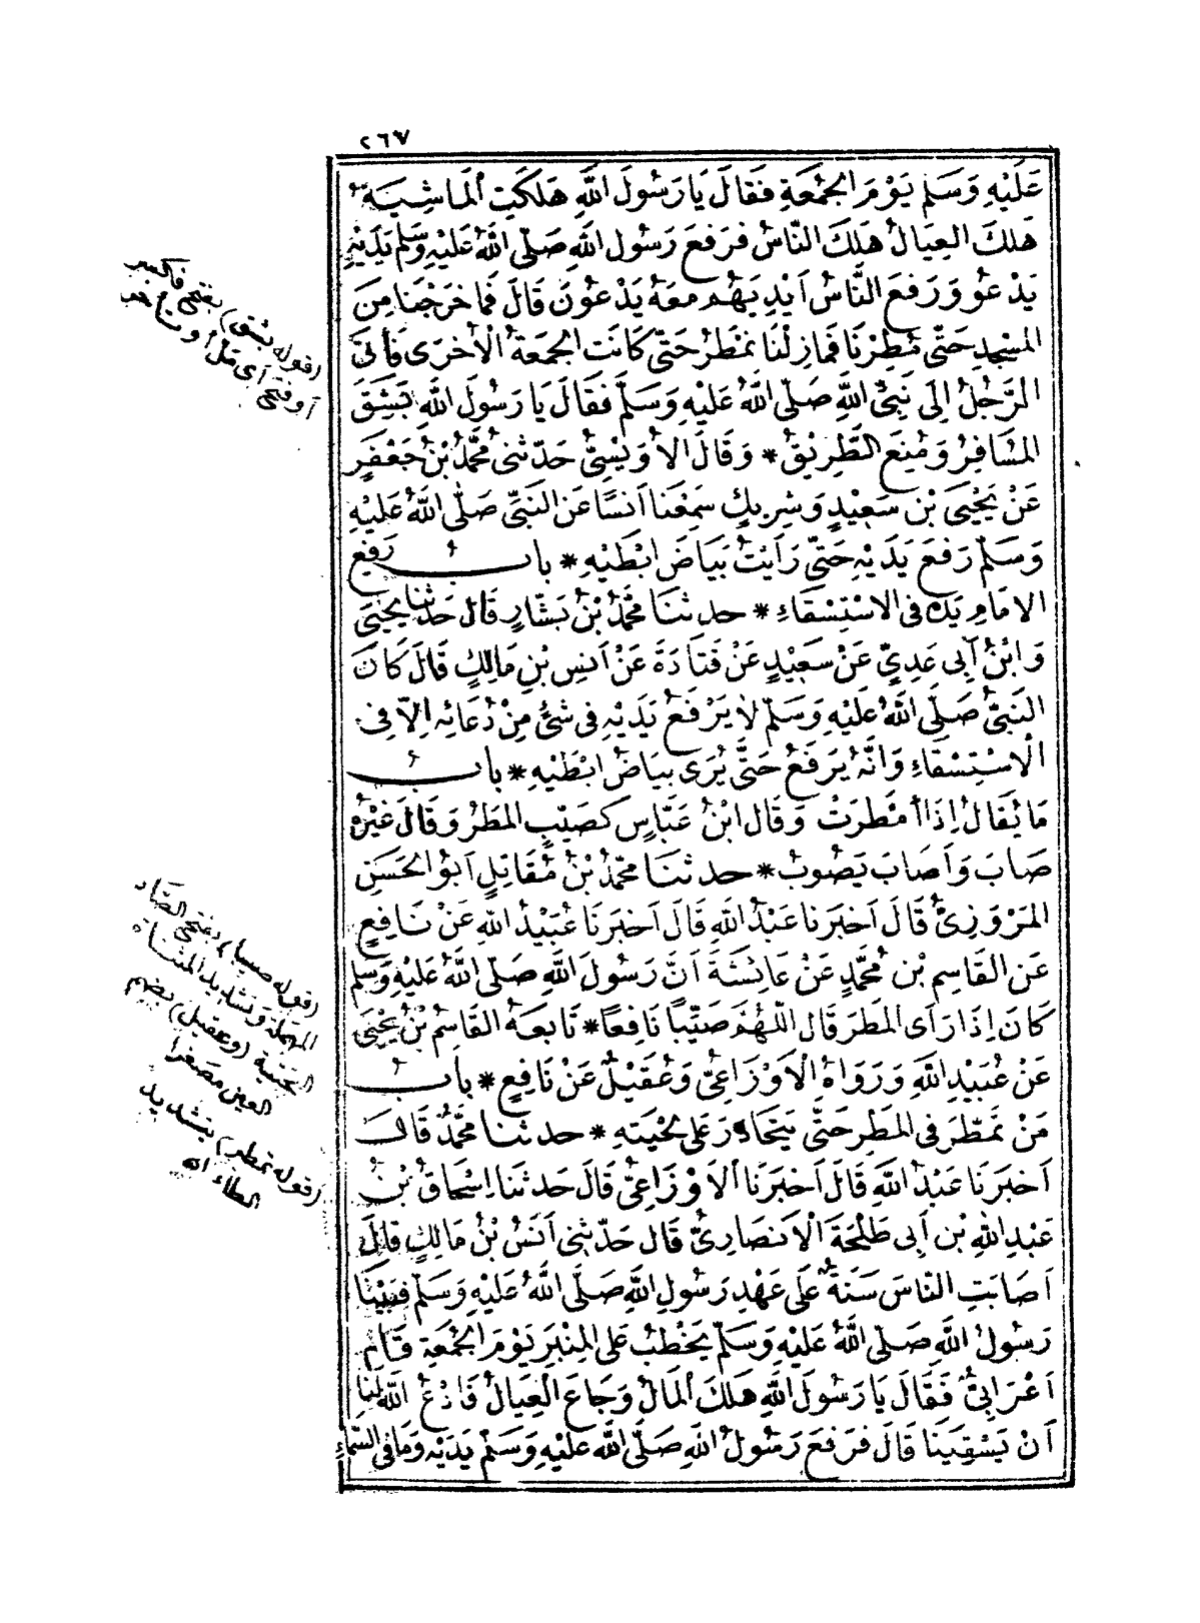 ٢٦٧
عَلَيْهِ وَسَلَّمَ يَوْمَ الجُمُعَةِ فَقَالَ يَا رَسُولَ اللَّهِ هَلَكَتِ الْمَاشِيَةُ
هَلَكَ العِيَالُ هَلَكَ النَّاسُ فَرَفَعَ رَسُولُ اللَّهِ صَلَّى اللَّهُ عَلَيْهِ وَسَلَّمَ يَدَيْهِ
يَدْعُو وَرَفَعَ النَّاسُ أَيْدِيَهُمْ مَعَهُ يَدْعُونَ قَالَ فَمَا خَرَجْنَا مِنَ
المَسْجِدِ حَتَّى مُطِرْنَا فَمَا زِلْنَا نُمْطَرُ حَتَّى كَانَتِ الجُمُعَةُ الأُخْرَى فَأَتَى
الرَّجُلُ إِلَى نَبِيِّ اللَّهِ صَلَّى اللَّهُ عَلَيْهِ وَسَلَّمَ فَقَالَ يَا رَسُولَ اللَّهِ بَشِقَ
المُسَافِرُ وَمُنِعَ الطَّرِيقُ * وَقَالَ الأُوَيْسِيُّ حَدَّثَنِي مُحَمَّدُ بْنُ جَعْفَرٍ
عَنْ يَحْيَى بْنِ سَعِيدٍ وَشَرِيكٍ سَمِعْنَا أَنَسًا عَنِ النَّبِيِّ صَلَّى اللَّهُ عَلَيْهِ
وَسَلَّمَ رَفَعَ يَدَيْهِ حَتَّى رَأَيْتُ بَيَاضَ إِبْطَيْهِ * بابُ رَفْعِ
الإمَامِ يَدَهُ فِي الاسْتِسْقَاءِ * حدثنَا مُحَمَّدُ بْنُ بَشَّارٍ قَالَ حَدَّثَنَا يَحْيَى
وَابْنُ أَبِي عَدِيٍّ عَنْ سَعِيدٍ عَنْ قَتَادَةَ عَنْ أَنَسِ بْنِ مَالِكٍ قَالَ كَانَ
النَّبِيُّ صَلَّى اللَّهُ عَلَيْهِ وَسَلَّمَ لاَ يَرْفَعُ يَدَيْهِ فِي شَيْءٍ مِنْ دُعَائِهِ إِلاَّ فِي
الاسْتِسْقَاءِ وَإِنَّهُ يَرْفَعُ حَتَّى يُرَى بَيَاضُ إِبْطَيْهِ * بابُ
مَا يُقَالُ إِذَا أَمْطَرَتْ وَقَالَ ابْنُ عَبَّاسٍ كَصَيِّبٍ المَطَرُ وَقَالَ غَيْرُهُ
صَابَ وَأَصَابَ يَصُوبُ * حدثنَا مُحَمَّدُ بْنُ مُقَاتِلٍ أَبُو الحَسَنِ
المَرْوَزِيُّ قَالَ أَخْبَرَنَا عَبْدُ اللَّهِ قَالَ أَخْبَرَنَا عُبَيْدُ اللَّهِ عَنْ نَافِعٍ
عَنِ القَاسِمِ بْنِ مُحَمَّدٍ عَنْ عَائِشَةَ أَنَّ رَسُولَ اللَّهِ صَلَّى اللَّهُ عَلَيْهِ وَسَلَّمَ
كَانَ إِذَا رَأَى المَطَرَ قَالَ اللَّهُمَّ صَيِّبًا نَافِعًا * تَابَعَهُ القَاسِمُ بْنُ يَحْيَى
عَنْ عُبَيْدِ اللَّهِ وَرَوَاهُ الأَوْزَاعِيُّ وَعُقَيْلٌ عَنْ نَافِعٍ * بابُ
مَنْ تَمَطَّرَ فِي المَطَرِ حَتَّى يَتَحَادَرَ عَلَى لِحْيَتِهِ * حدثنَا مُحَمَّدٌ قَالَ
أَخْبَرَنَا عَبْدُ اللَّهِ قَالَ أَخْبَرَنَا الأَوْزَاعِيُّ قَالَ حَدثنَا إِسْحَاقُ بْنُ
عَبْدِ اللَّهِ بْنِ أَبِي طَلْحَةَ الأَنْصَارِيُّ قَالَ حَدَّثَنِي أَنَسُ بْنُ مَالِكٍ قَالَ
أَصَابَتِ النَّاسَ سَنَةٌ عَلَى عَهْدِ رَسُولِ اللَّهِ صَلَّى اللَّهُ عَلَيْهِ وَسَلَّمَ فَبَيْنَا
رَسُولُ اللَّهِ صَلَّى اللَّهُ عَلَيْهِ وَسَلَّمَ يَخْطُبُ عَلَى المِنْبَرِ يَوْمَ الجُمُعَةِ قَامَ
أَعْرَابِيٌّ فَقَالَ يَا رَسُولَ اللَّهِ هَلَكَ المَالُ وَجَاعَ العِيَالُ فَادْعُ اللَّهَ لَنَا
أَنْ يَسْقِيَنَا قَالَ فَرَفَعَ رَسُولُ اللَّهِ صَلَّى اللَّهُ عَلَيْهِ وَسَلَّمَ يَدَيْهِ وَمَا فِي السَّمَاءِ
(قوله بشق) بفتح فكسر
أو فتح أى مل أو تأخر
(قوله صيبا) بفتح الصَّاد
المهملة وتشديد المثناة
التحتية (وعقيل) بضم
العين مصغرا
(قوله تمطر) بتشديد
الطاء اه